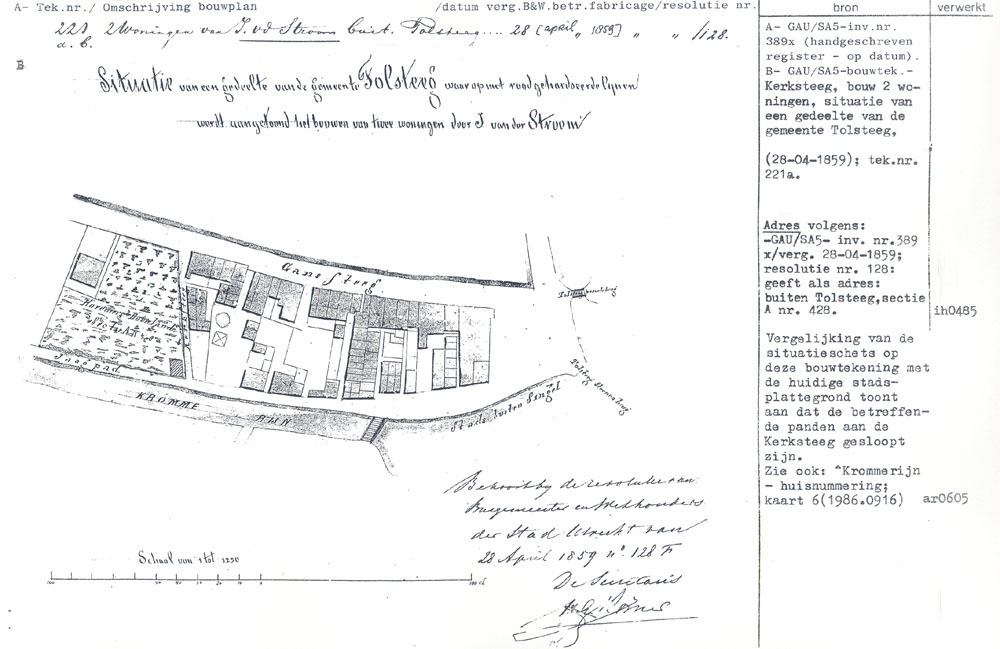 A- Tek.nr./ Omschrijving bouwplan /datum verg.B&W.betr.fabricage/resolutie nr.
221 2 Woningen van J. v.d Stroom buit. Tolsteeg.... 28 [april 1859] " " F/128.
a. b.
B
Situatie van een gedeelte van de gemeente Tolsteeg waarop met rood geharseerde lijnen
wordt aangetoond het bouwen van twee woningen door J van der Stroom
Gans Steeg
Jaagpad
KROMME
RIJN
Stads Buiten Singel
Schaal van 1 tot 1250
Behoort bij de resolutie van
Burgemeester en Wethouders
der Stad Utrecht van
28 April 1859 n° 128 F
De Secretaris
bron
verwerkt
A- GAU/SA5-inv.nr.
389x (handgeschreven
register - op datum).
B- GAU/SA5-bouwtek.-
Kerksteeg, bouw 2 wo-
ningen, situatie van
een gedeelte van de
gemeente Tolsteeg,
(28-04-1859); tek.nr.
221a.
Adres volgens:
-GAU/SA5- inv. nr.389
x/verg. 28-04-1859;
resolutie nr. 128:
geeft als adres:
buiten Tolsteeg,sectie
A nr. 428.
ih0485
Vergelijking van de
situatieschets op
deze bouwtekening met
de huidige stads-
plattegrond toont
aan dat de betreffen-
de panden aan de
Kerksteeg gesloopt
zijn.
Zie ook: ^Krommerijn
- huisnummering;
kaart 6(1986.0916)
ar0605